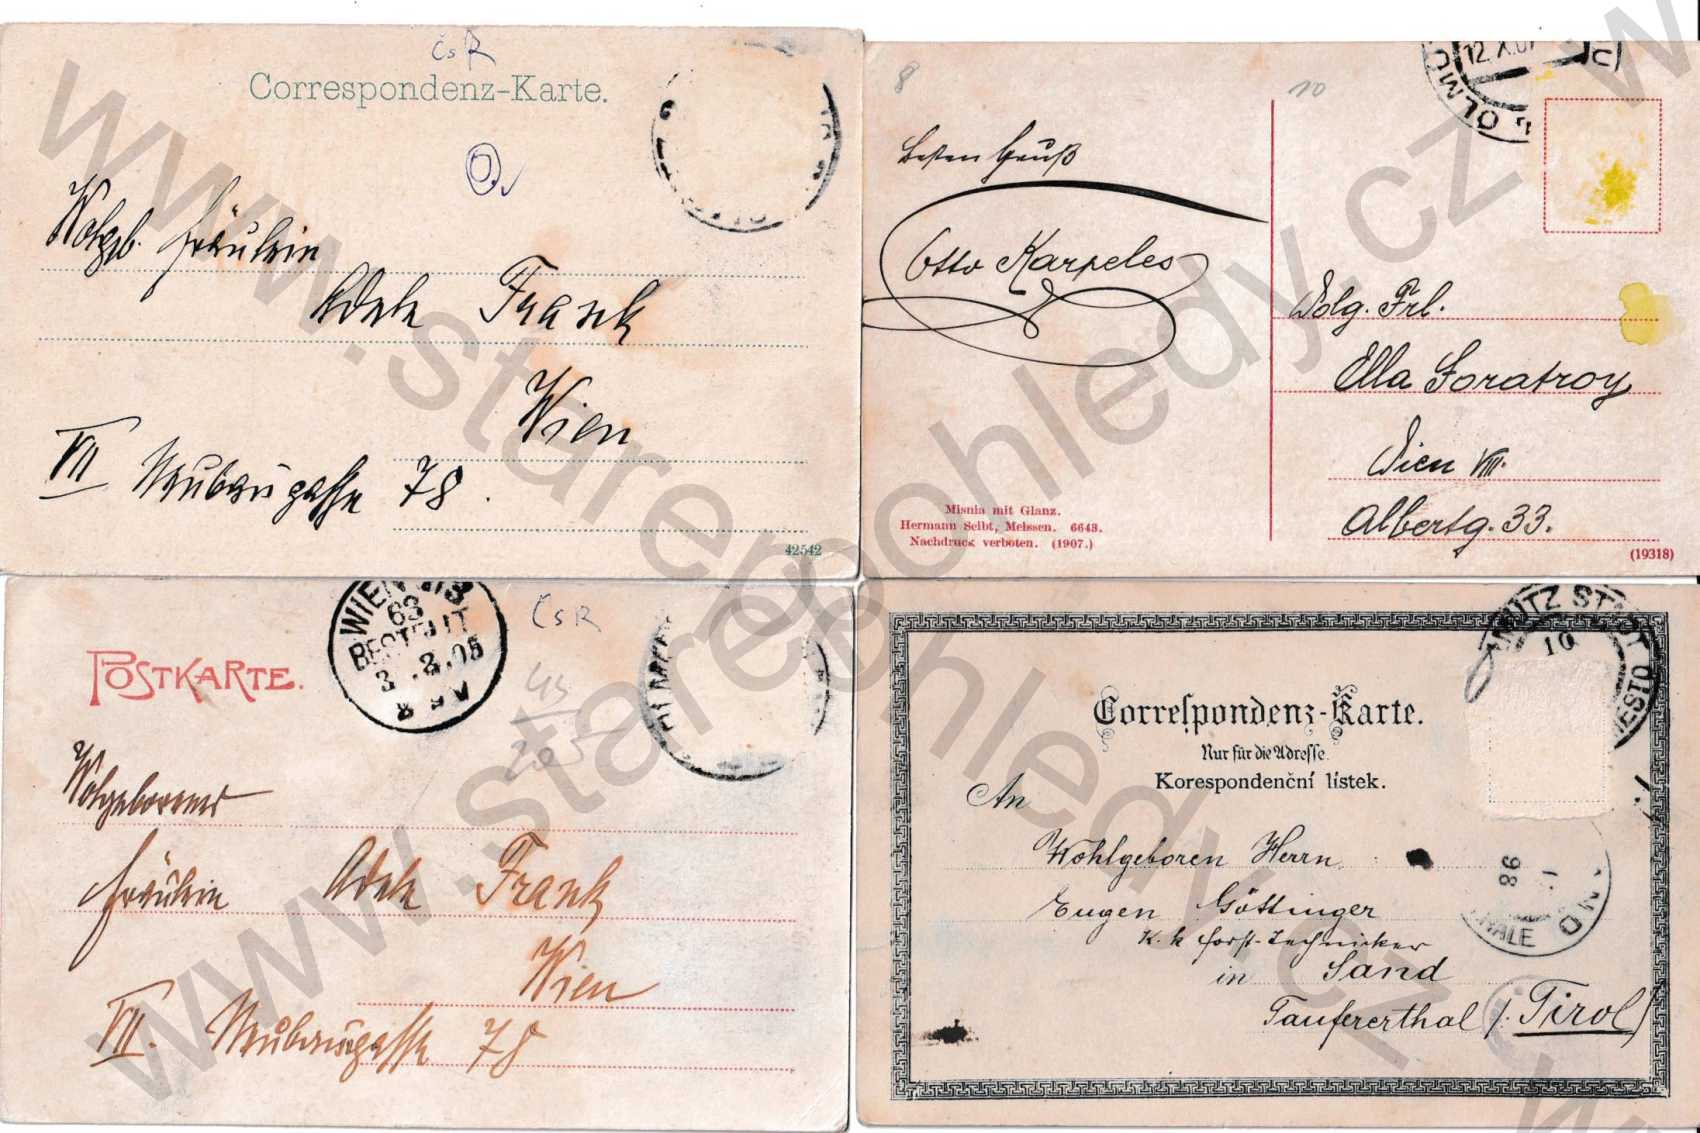 ČSR
Correspondenz-Karte.
Wolgeb. Fräulein
Adele Frank
Wien
VII Neubaugasse 78.
42542
8
10
12 X 07
OLMÜ
Besten Gruß
Otto Karpeles
Wolg. Frl.
Ella
Wien VIII.
Albertg. 33.
Misnia mit Glanz.
Hermann Seibt, Meissen. 6643.
Nachdruck verboten. (1907.)
(19318)
WIEN
63
BESTELLT
3.2.05
ČSR
POSTKARTE.
Wolgeborenes
Fräulein Adele Frank
Wien
VII. Neubaugasse 78
MUTZ STADT
10
MĚSTO
Correspondenz-Karte.
Nur für die Adresse.
Korespondenční lístek.
An
Wohlgeboren Herrn
Eugen Göttinger
K. k Forst-Technicker
in Sand
Taufererthal /: Tirol
98
www.starepohledy.cz
www.starepohledy.cz